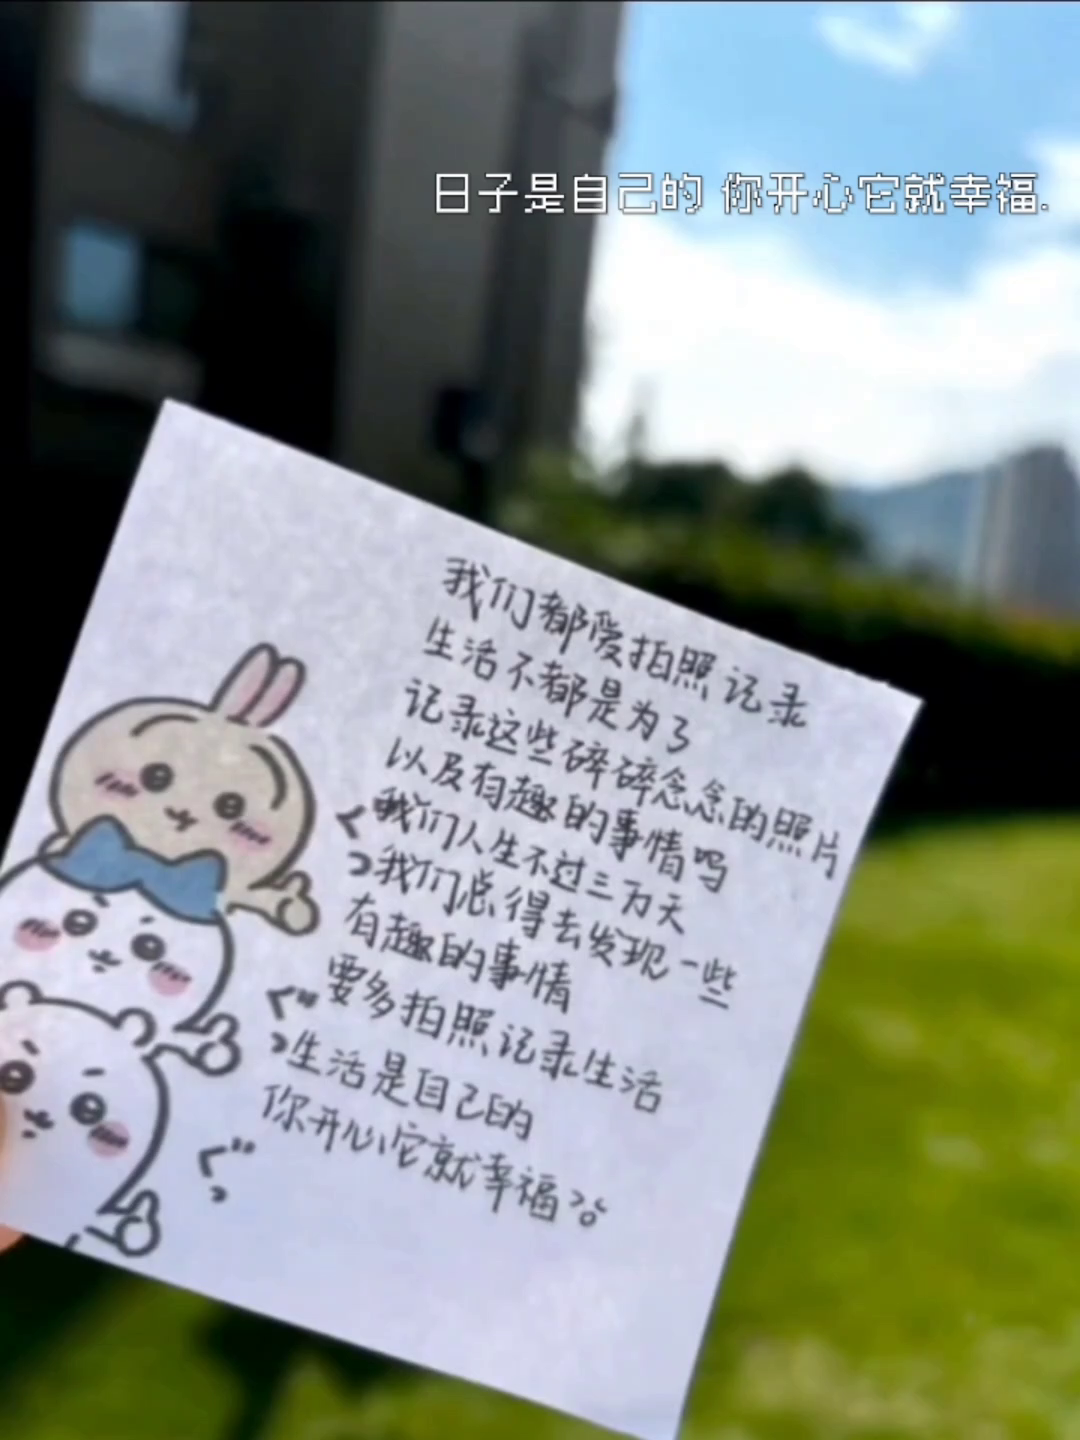 日子是自己的 你开心它就幸福.
我们都爱拍照记录
生活不都是为了
记录这些碎碎念念的照片
以及有趣的事情吗
我们人生不过三万天
我们总得去发现一些
有趣的事情
要多拍照记录生活
生活是自己的
你开心它就幸福